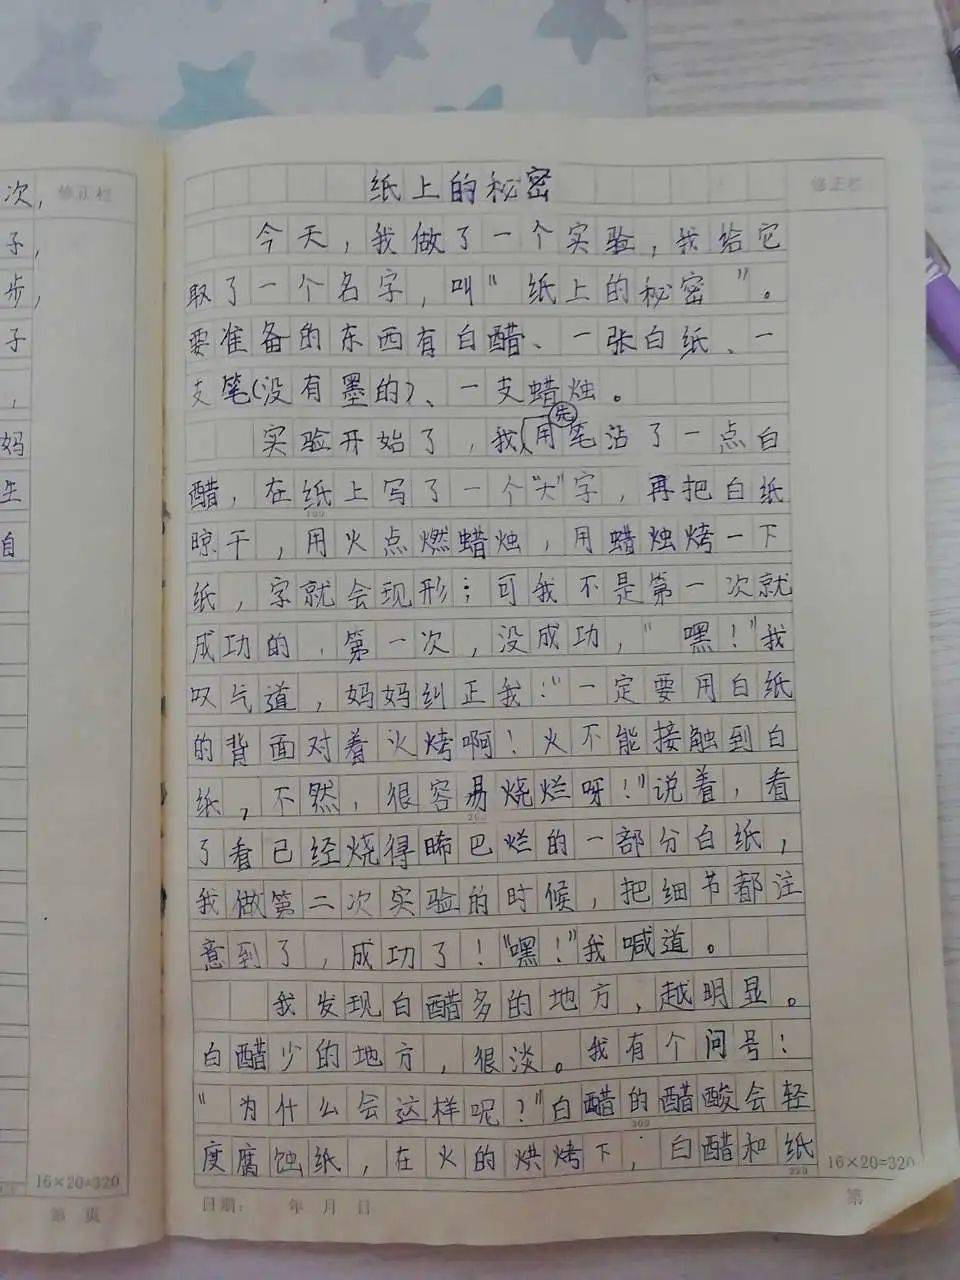 次，
子，
步，
子
，
妈
生
自
修正栏
16×20=320
第 页
修正栏
纸上的秘密
今天，我做了一个实验，我给它
取了一个名字，叫“纸上的秘密”。
要准备的东西有白醋、一张白纸、一
支笔(没有墨的)、一支蜡烛。
实验开始了，我先用笔沾了一点白
醋，在纸上写了一个“大”字，再把白纸
晾干，用火点燃蜡烛，用蜡烛烤一下
纸，字就会现形；可我不是第一次就
成功的，第一次，没成功，“嘿！”我
叹气道，妈妈纠正我：“一定要用白纸
的背面对着火烤啊！火不能接触到白
纸，不然，很容易烧烂呀！”说着，看
了看已经烧得晞巴烂的一部分白纸，
我做第二次实验的时候，把细节都注
意到了，成功了！“嘿！”我喊道。
我发现白醋多的地方，越明显。
白醋少的地方，很淡。我有个问号：
“为什么会这样呢？”白醋的醋酸会轻
度腐蚀纸，在火的烘烤下，白醋和纸
100
200
300
320
16×20=320
日期： 年 月 日
第